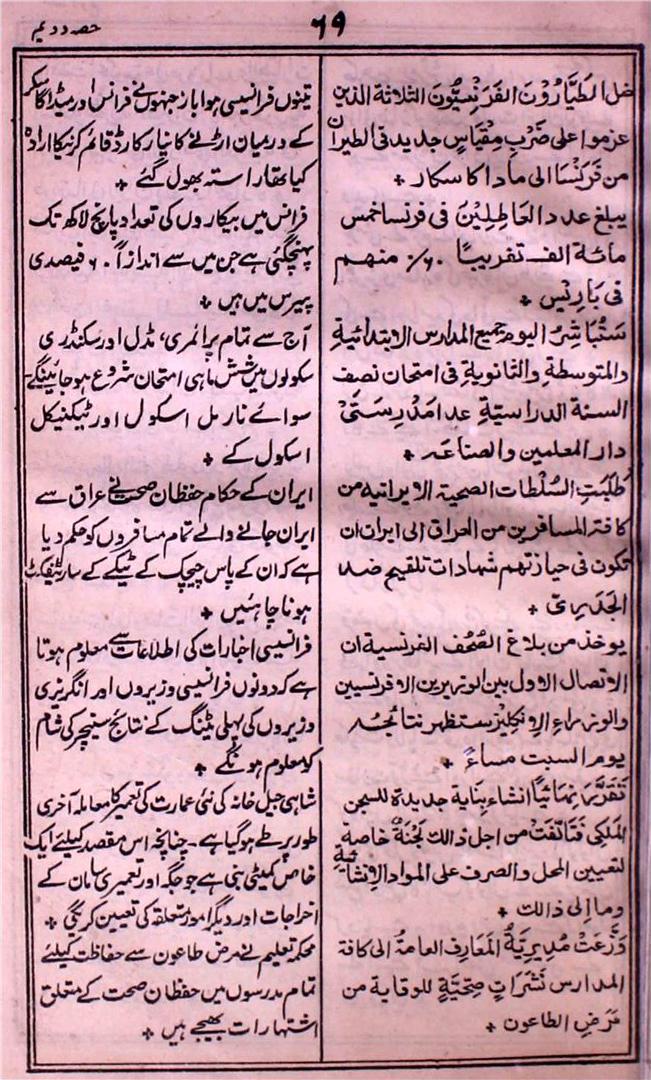 ۶۹
حصہ دویم
ضل الطَیَّارُوْنَ الفَرَنْسِیُّوْنَ الثلاثة الذین
عزموا علی ضَرْبِ مِقْیَاسٍ جدید فی الطیران
من فَرَنْسَا الی مادا کا سکار ٭
یبلغ عدد العَاطِلِیْنَ فی فرنسا خمس
مائة الف تقریبًا ۶۰٪ منهم
فی بَارِیْس ٭
سَتُبَاشِرُ الیوم جمیع المدارس الابتدائیةِ
والمتوسطةِ والثانویةِ فی امتحان نصف
السنة الدراسیّةِ عدا مَدْرِسَتَیْ
دار المعلمین والصناعہ ٭
طُلَبَتِ السُلْطات الصحیة الایرانیه من
کافة المسافرین من العراق الی ایران ان
تکون فی حیازتهم شهادات تلقیح ضد
الجَدَرِیّ ٭
یوخذ من بلاغ الصُحُف الفرنسیة ان
الاتصال الاول بین الوزیرین الافرنسیین
والوزراءِ الاِنکلیز ستظهر نتائجه
یوم السبت مساءً ٭
تَقَرَّرَ نهائیّاً انشاء بِنَایة جدیدة للسجن
المَلَکِی فَتَالَّفَتْ من اجل ذالك لَجْنَة خاصة
لتعیین المحل والصرف علی المواد الاِنشائیة
وما إلی ذالك ٭
وَزَّعَتْ مُدِیْرِیَّةُ المَعَارف العامة الی کافة
المدارس نَشَرَاتٍ صِحّیَّةٍ للوقایة من
مَرَضِ الطاعون ٭
تینوں فرانسیسی ہوا باز جنہوں نے فرانس اور میڈاگاسکر
کے درمیان اڑنے کا نیا ریکارڈ قائم کرنیکا ارادہ
کیا تھا راستہ بھول گئے ٭
فرانس میں بیکاروں کی تعداد پانچ لاکھ تک
پہنچگئی ہے جن میں سے اندازاً ۶۰ فیصدی
پیرس میں ہیں ٭
آج سے تمام پرائمری، مڈل اور سکنڈری
سکولوں میں شش ماہی امتحان شروع ہو جائینگے۔
سوائے نارمل اسکول اور ٹیکنیکل
اسکول کے ٭
ایران کے حکام حفظان صحت نے عراق سے
ایران جانے والے تمام مسافروں کو حکم دیا
ہے کہ ان کے پاس چیچک کے ٹیکے کے سارٹیفکٹ
ہونا چاہئیں ٭
فرانسیسی اخبارات کی اطلاعات سے معلوم ہوتا
ہے کہ دونوں فرانسیسی وزیروں اور انگریزی
وزیروں کی پہلی میٹنگ کے نتائج سنیچر کی شام
کو معلوم ہونگے ٭
شاہی جیل خانہ کی نئی عمارت کی تعمیر کا معاملہ آخری
طور پر طے ہو گیا ہے۔ چنانچہ اس مقصد کیلئے ایک
خاص کمیٹی بنی ہے جو جگہ اور تعمیری سامان کے
اخراجات اور دیگر امور متعلقہ کی تعیین کریگی ٭
محکمہ تعلیم نے مرض طاعون سے حفاظت کیلئے
تمام مدرسوں میں حفظان صحت کے متعلق
اشتہارات بھیجے ہیں ٭